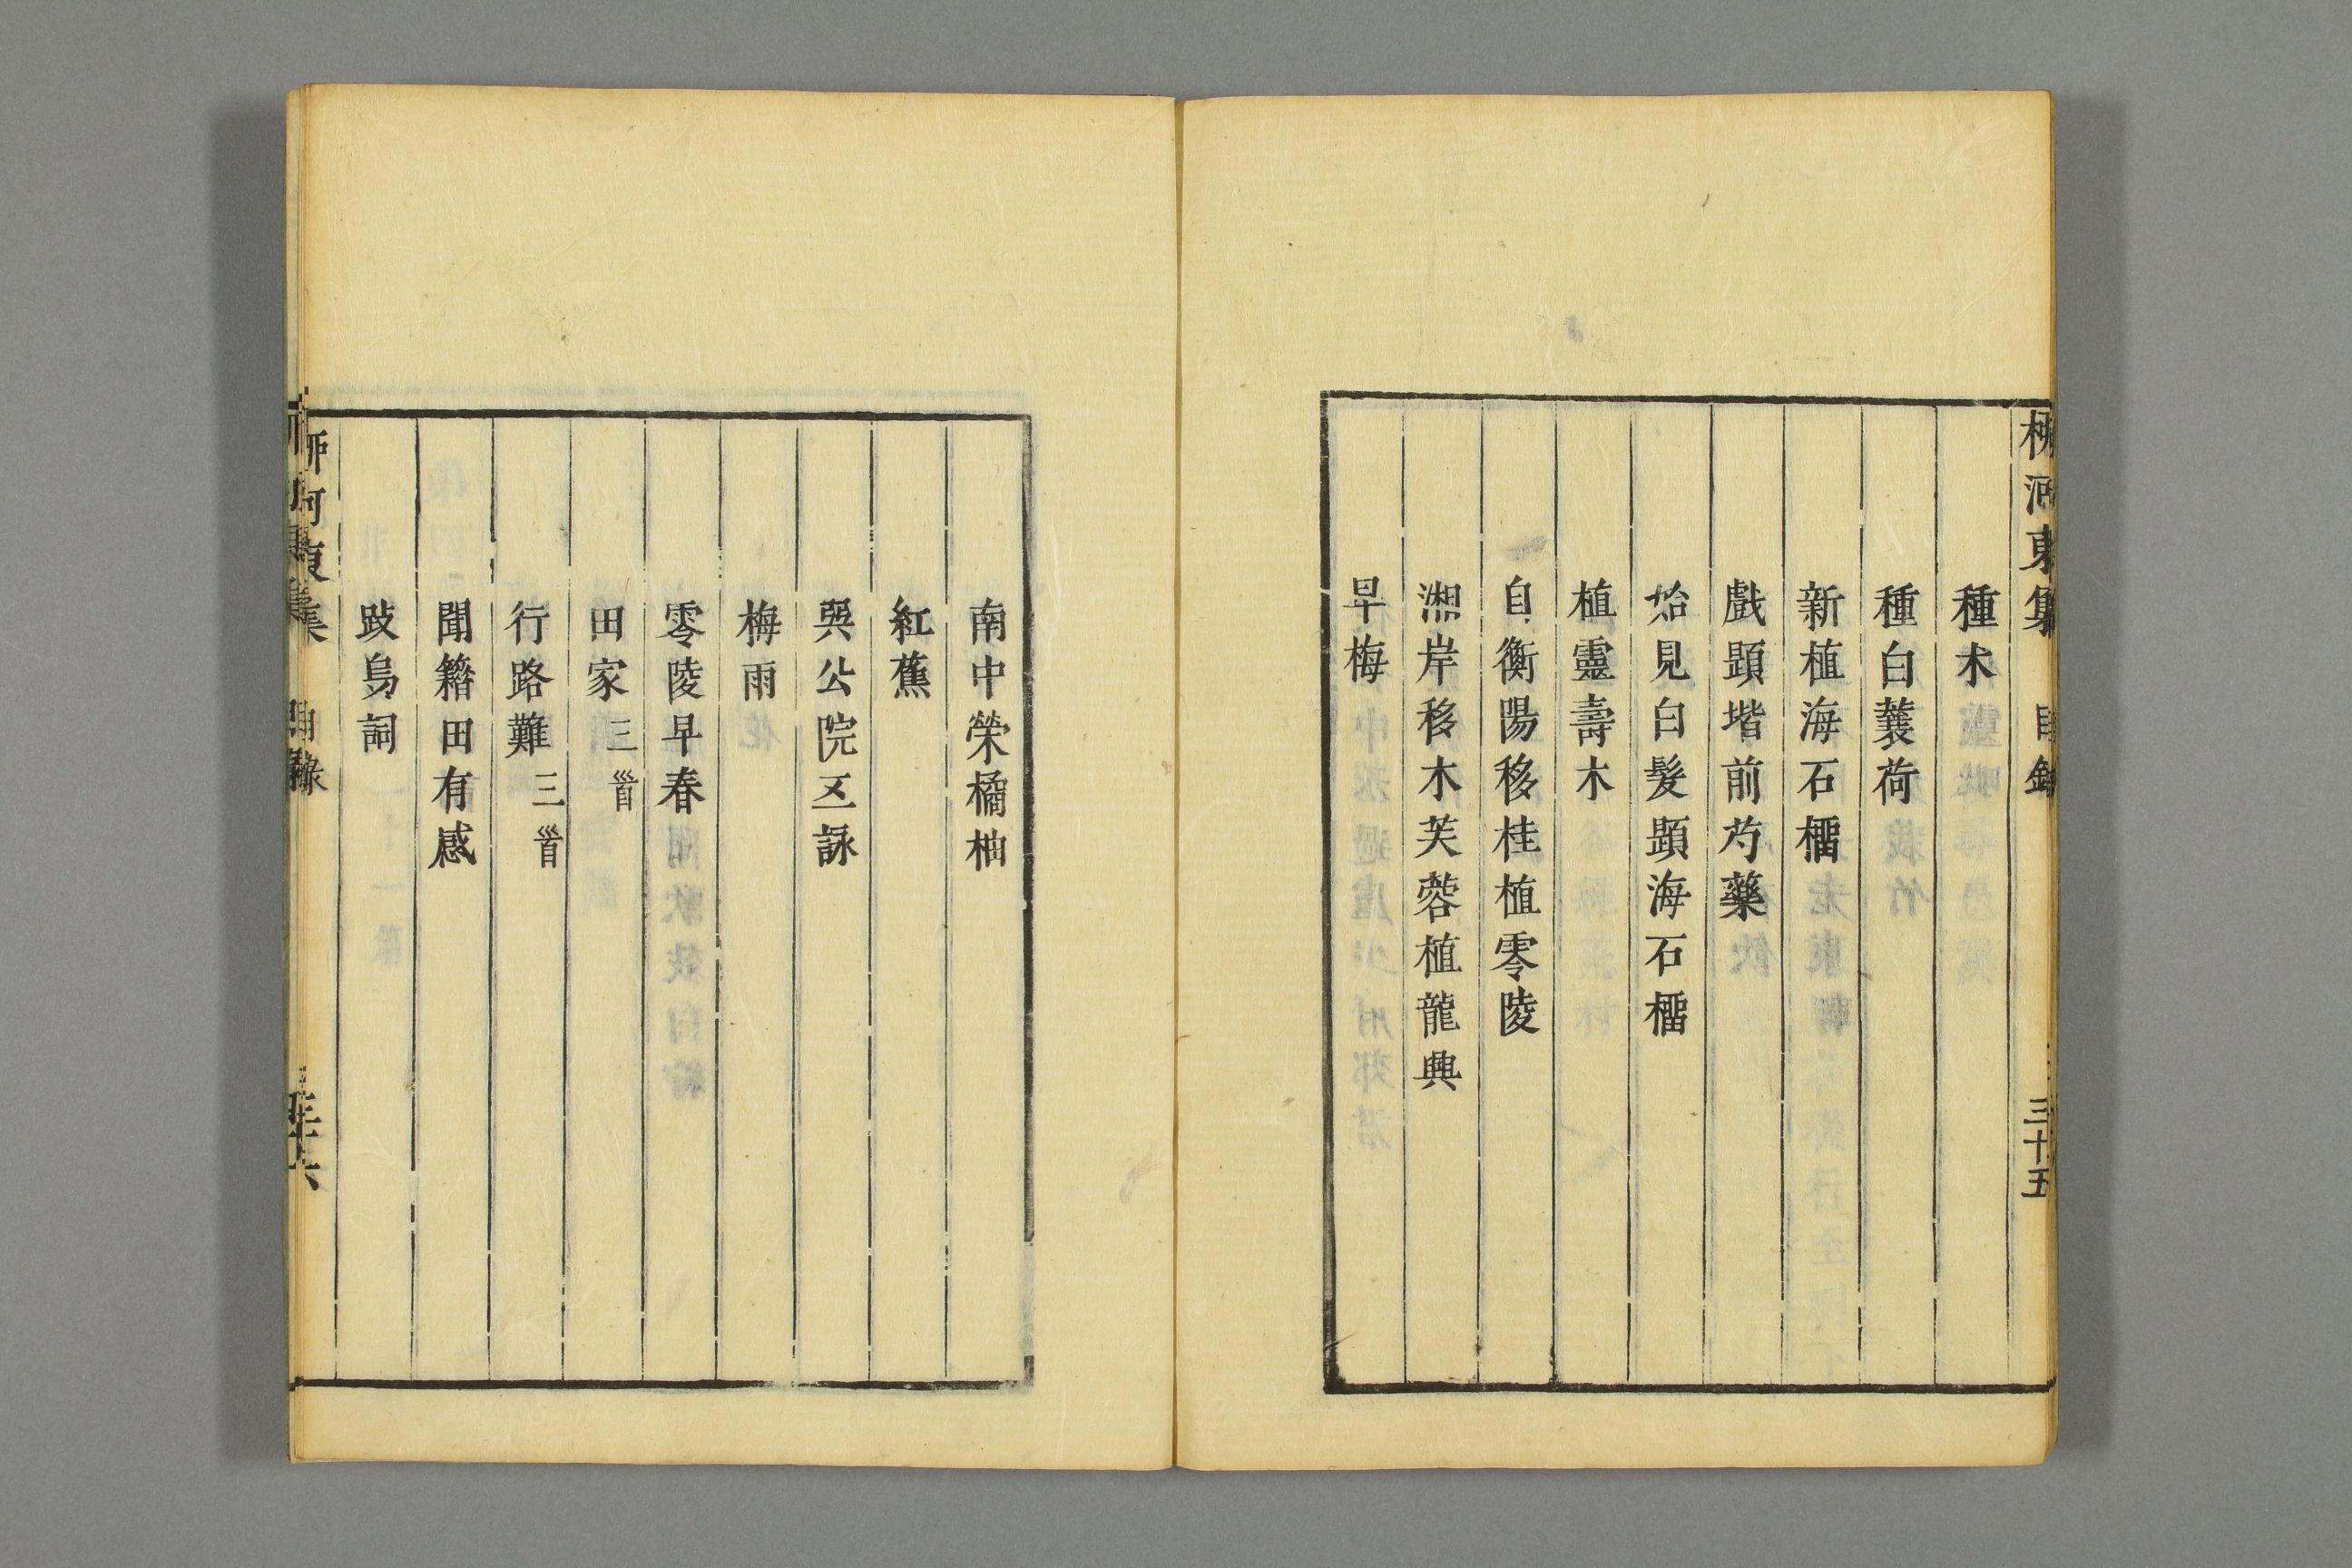 柳河東集 目錄 三十五
種木
種白蘘荷
新植海石橊
戲題堦前芍藥
始見白髮題海石橊
植靈壽木
自衡陽移桂植零陵
湘岸移木芙蓉植龍興
早梅
南中榮橘柚
紅蕉
巽公院五詠
梅雨
零陵早春
田家三首
行路難三首
聞籍田有感
跂烏詞
柳河東集 目錄 三十六